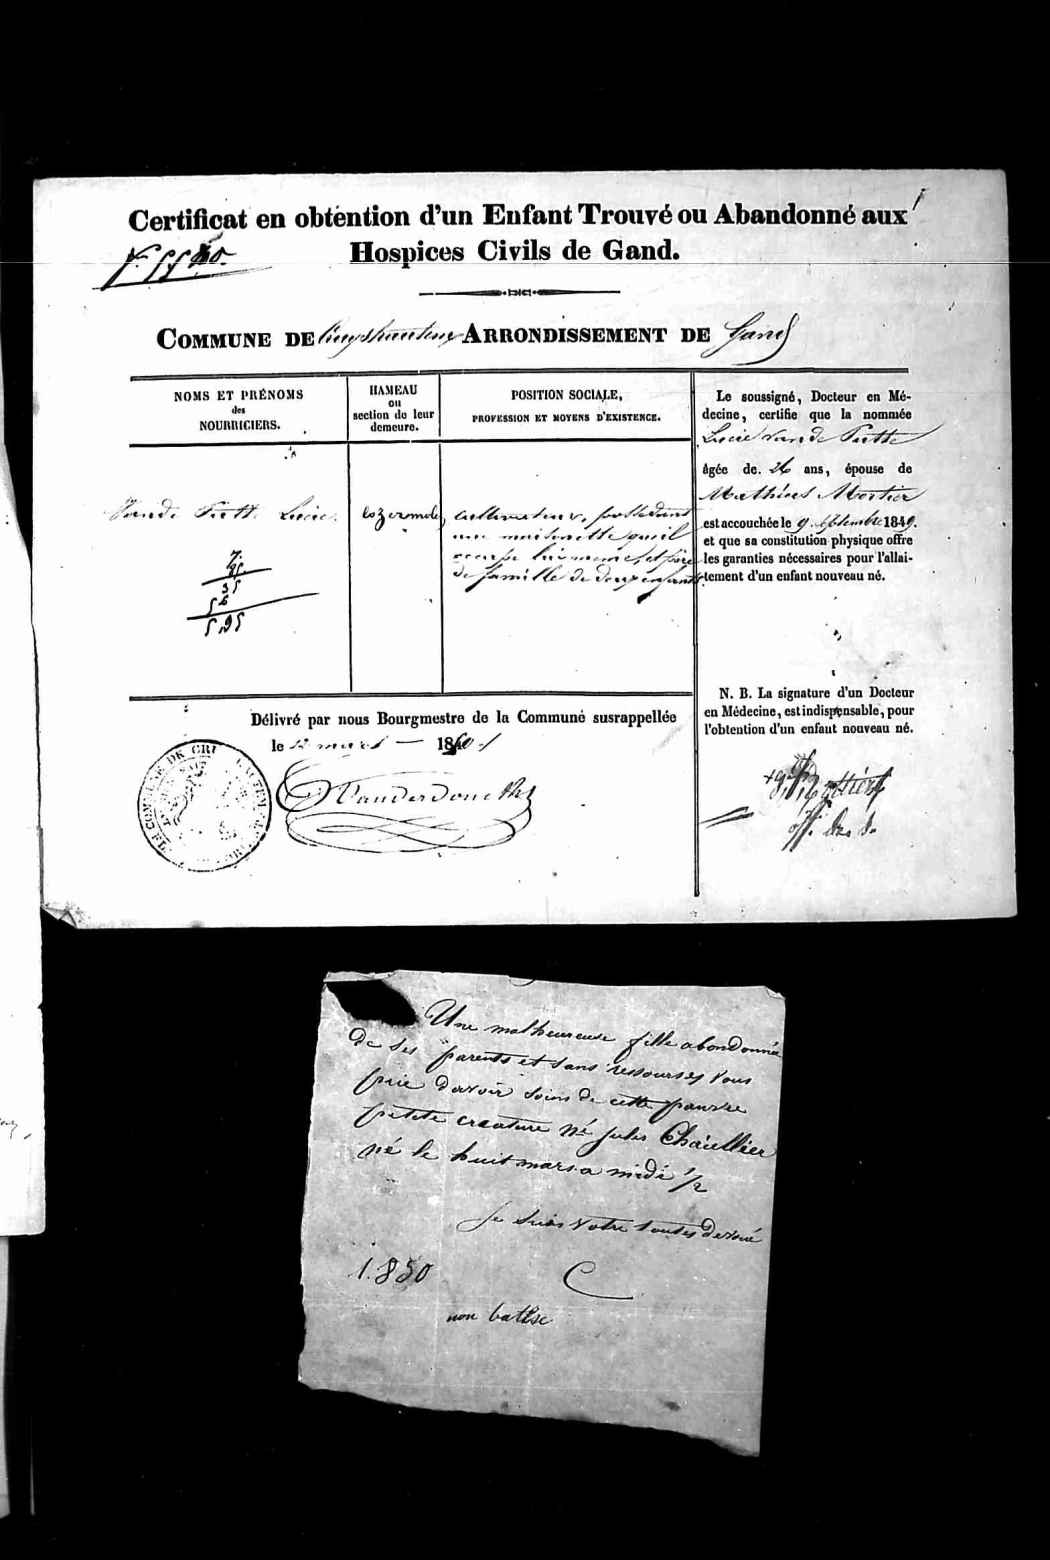 Certificat en obtention d'un Enfant Trouvé ou Abandonné aux
Hospices Civils de Gand.
COMMUNE DE Cruyshautem ARRONDISSEMENT DE Gand
NOMS ET PRÉNOMS
des
NOURRICIERS.
HAMEAU
ou
section de leur
demeure.
POSITION SOCIALE,
PROFESSION ET MOYENS D'EXISTENCE.
Vande Putt. Lucie.
Lozermole,
cultivateur, possedant
une maisonette qu'il
occupe lui meme, et père
de famille de deux enfants
7.
35
5,95
Le soussigné, Docteur en Mé-
decine, certifie que la nommée
Lucie Van de Putte
âgée de 26 ans, épouse de
Mathieus Mortier
est accouchée le 9 septembre 1849.
et que sa constitution physique offre
les garanties nécessaires pour l'allai-
tement d'un enfant nouveau né.
N. B. La signature d'un Docteur
en Médecine, est indispensable, pour
l'obtention d'un enfant nouveau né.
Délivré par nous Bourgmestre de la Commune susrappellée
le 12 mars 1850
Vanderdonckt
off. de s.
Une malheureuse fille abondonnée
de ses parents et sans ressourses vous
prie d'avoir soins de cette pauvre
petite creature né Jules Chäellier
né le huit mars a midi 1/2
Je suis votre toutes devoué
1.850
C
non batise